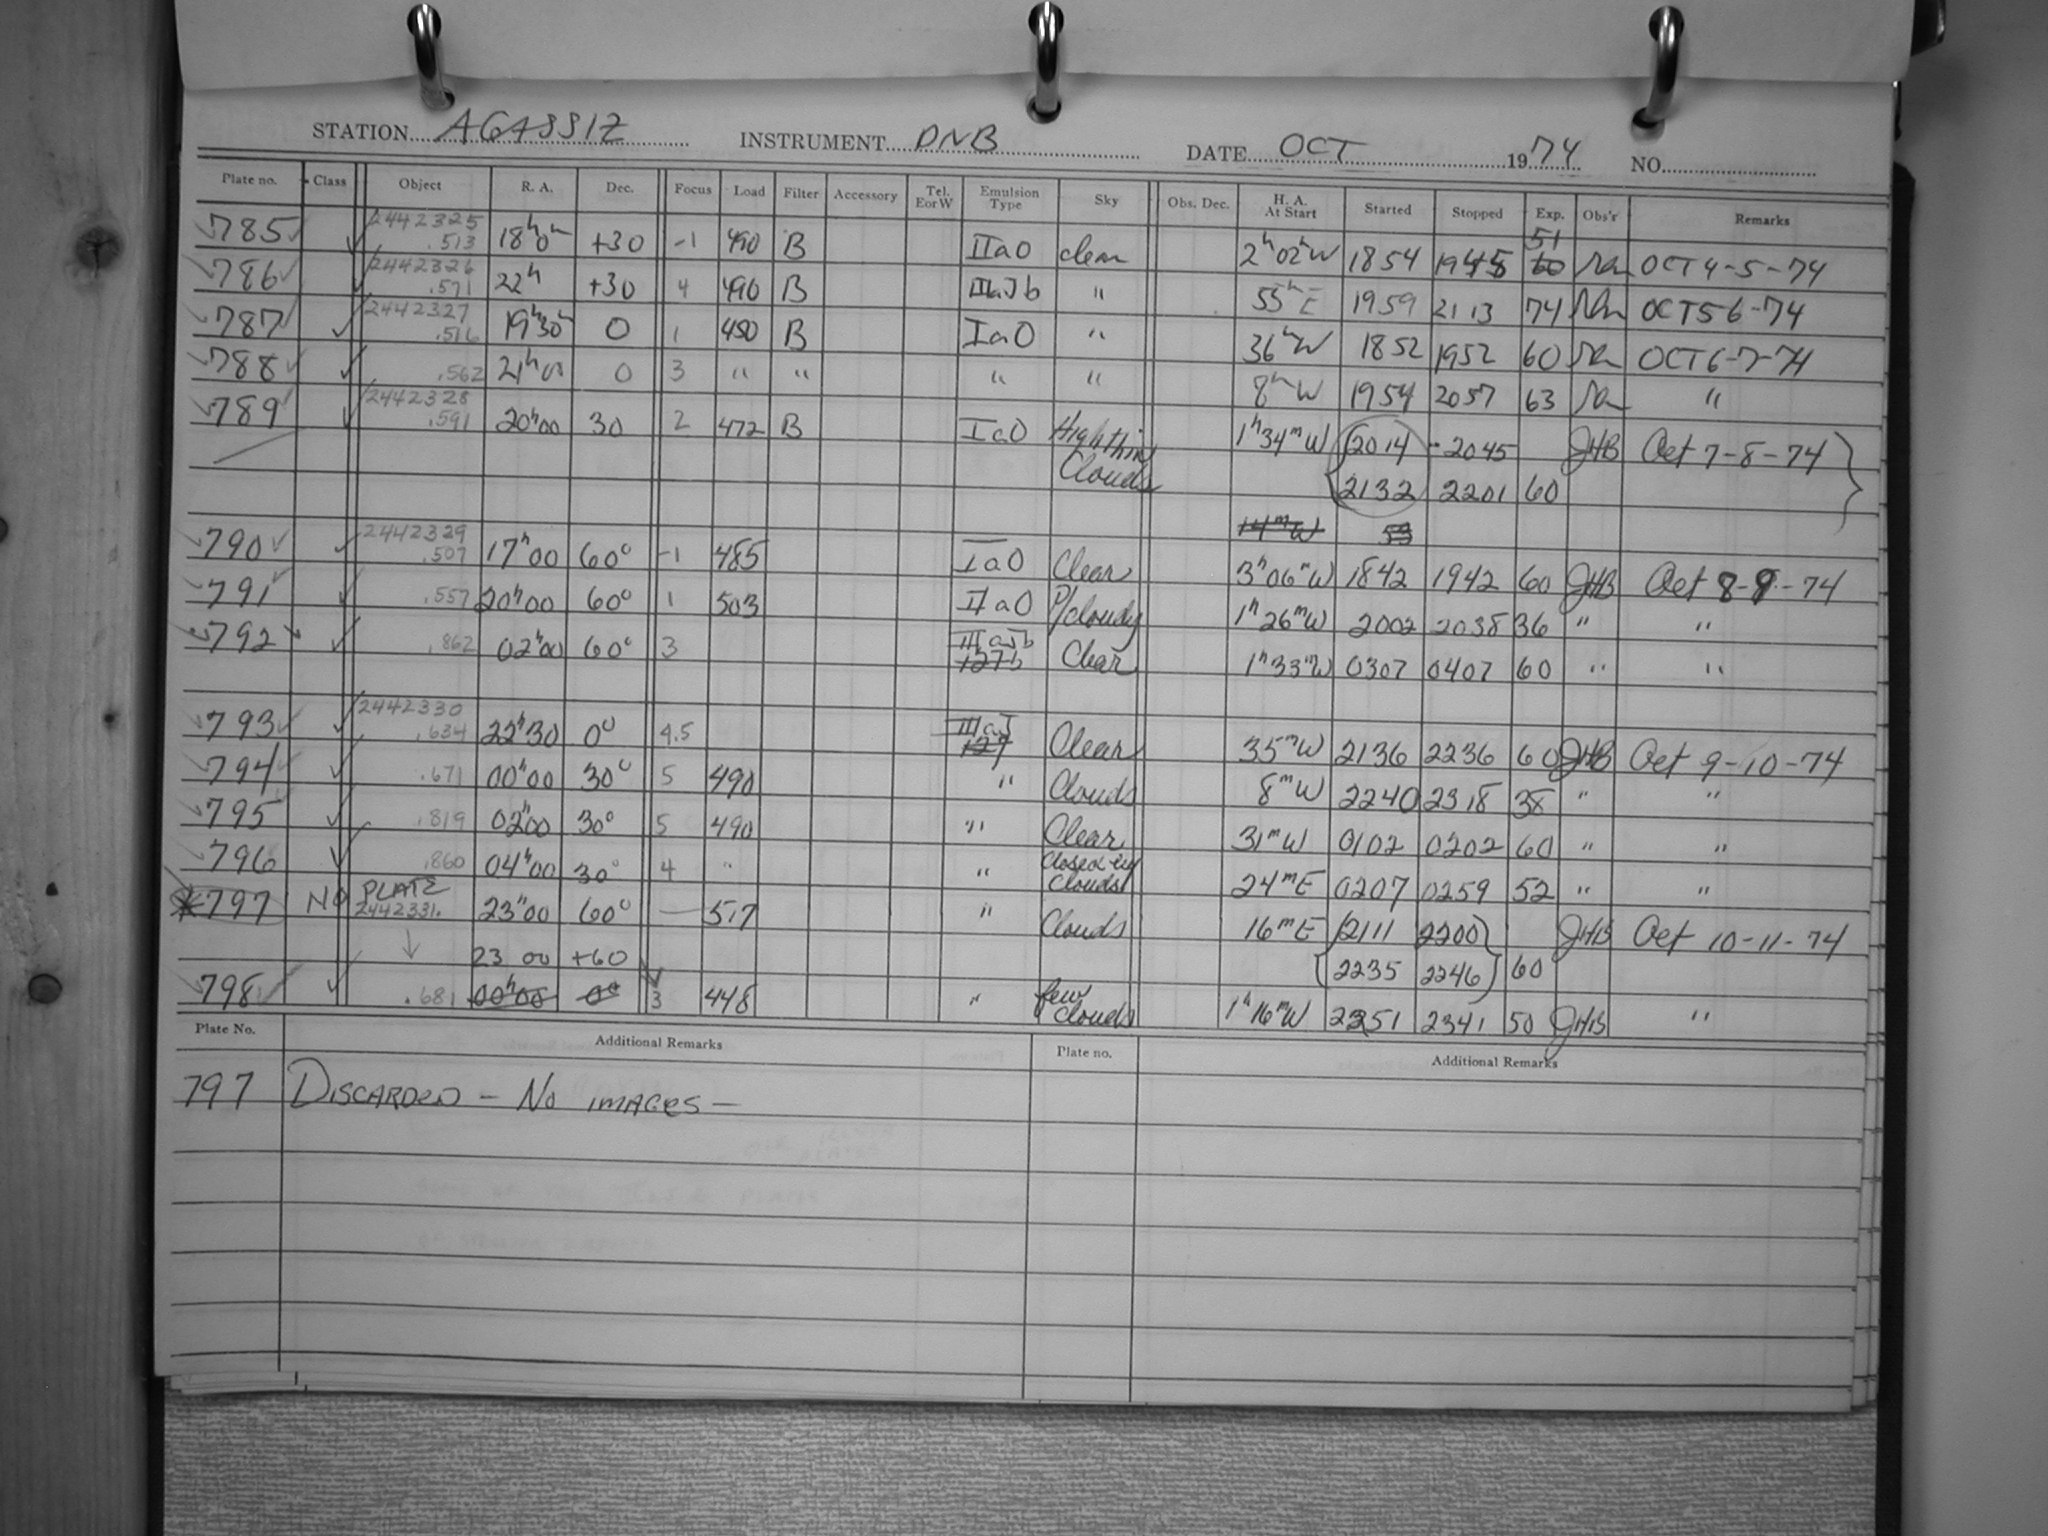 STATION AGASSIZ INSTRUMENT DNB DATE OCT 1974 NO.
Plate no. Class Object R. A. Dec. Focus Load Filter Accessory Tel. E or W Emulsion Type Sky Obs. Dec. H. A. At Start Started Stopped Exp. Obs'r Remarks
2442325 51
785 .513 18h0m +30 -1 490 B IIaO clear 2h02mW 1854 1945 60 OCT 4-5-74
2442326
786 .571 22h +30 4 490 B IIIaJb " 55mE 1959 2113 74 OCT 5-6-74
2442327
787 .516 19h30m 0 1 490 B IaO " 36mW 1852 1952 60 OCT 6-7-74
788 .562 21h00 0 3 " " " " 8mW 1954 2057 63 "
2442328
789 .591 20h00 30 2 472 B IaO High thin 1h34mW 2014 - 2045 JHB Oct 7-8-74
Clouds 2132 2201 60
14mW 53
2442329
790 .507 17h00 60° -1 485 IaO Clear 3h06mW 1842 1942 60 JHB Oct 8-9-74
791 .557 20h00 60° 1 503 IIaO P/cloudy 1h26mW 2002 2038 36 " "
792 .862 02h00 60° 3 IIIaJb 127b Clear 1h33mW 0307 0407 60 " "
2442330
793 .634 22h30 0° 4.5 IIIaJ 127 Clear 35mW 2136 2236 60 JHB Oct 9-10-74
794 .671 00h00 30° 5 490 " Clouds 8mW 2240 2318 38 " "
795 .819 02h00 30° 5 490 " Clear 31mW 0102 0202 60 " "
796 .860 04h00 30° 4 " " Closed by Clouds 24mE 0207 0259 52 " "
*797 NO PLATE 2442331. 23h00 60° — 517 " Clouds 16mE 2111 2200 JHB Oct 10-11-74
23 00 +60 2235 2246 60
798 .681 00h00 0° 3 448 " few clouds 1h16mW 2251 2341 50 JHB "
Plate No. Additional Remarks Plate no. Additional Remarks
797 DISCARDED - NO IMAGES -